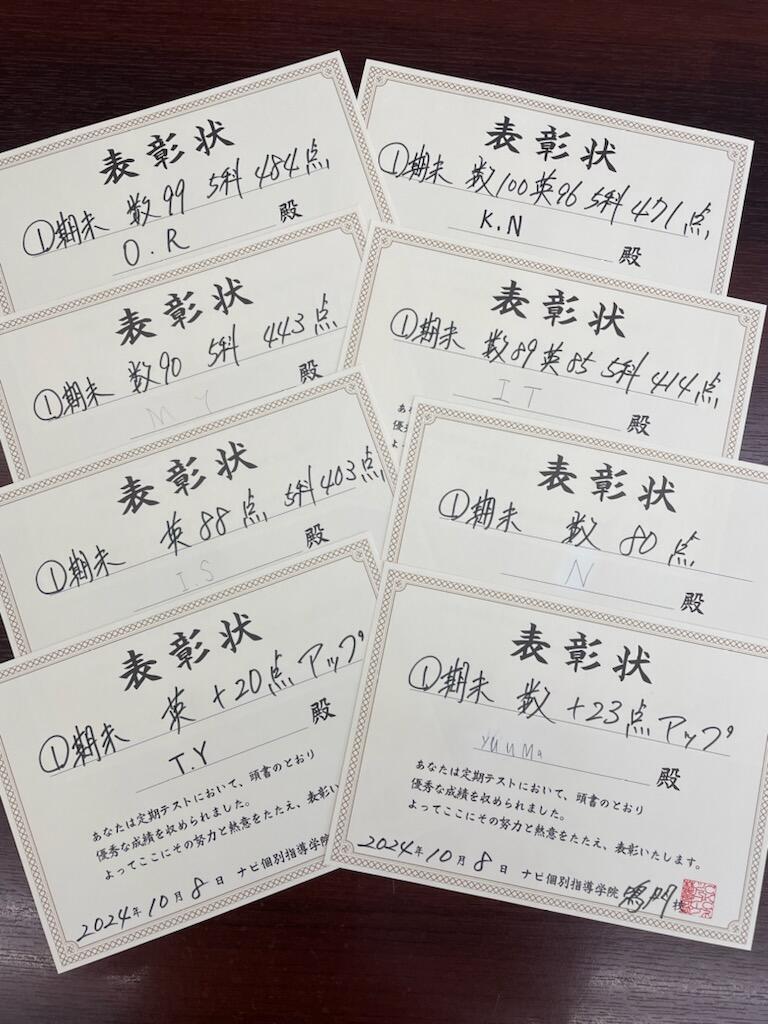 表彰状
①期末 数99 5科 484点
O.R 殿
表彰状
①期末 数100英96 5科 471点
K.N 殿
表彰状
①期末 数90 5科 443点
M Y 殿
表彰状
①期末 数89英85 5科 414点
I T 殿
あ
優秀
よっ
表彰状
①期末 英88点 5科403点
I.S 殿
表彰状
①期末 数 80点
N 殿
表彰状
①期末 英 +20点アップ
T.Y 殿
あなたは定期テストにおいて、頭書のとおり
優秀な成績を収められました。
よってここにその努力と熱意をたたえ、表彰い
2024年10月8日 ナビ個別指導学院
表彰状
①期末 数 +23点アップ
YUUMa 殿
あなたは定期テストにおいて、頭書のとおり
優秀な成績を収められました。
よってここにその努力と熱意をたたえ、表彰いたします。
2024年10月8日 ナビ個別指導学院 鳴門校